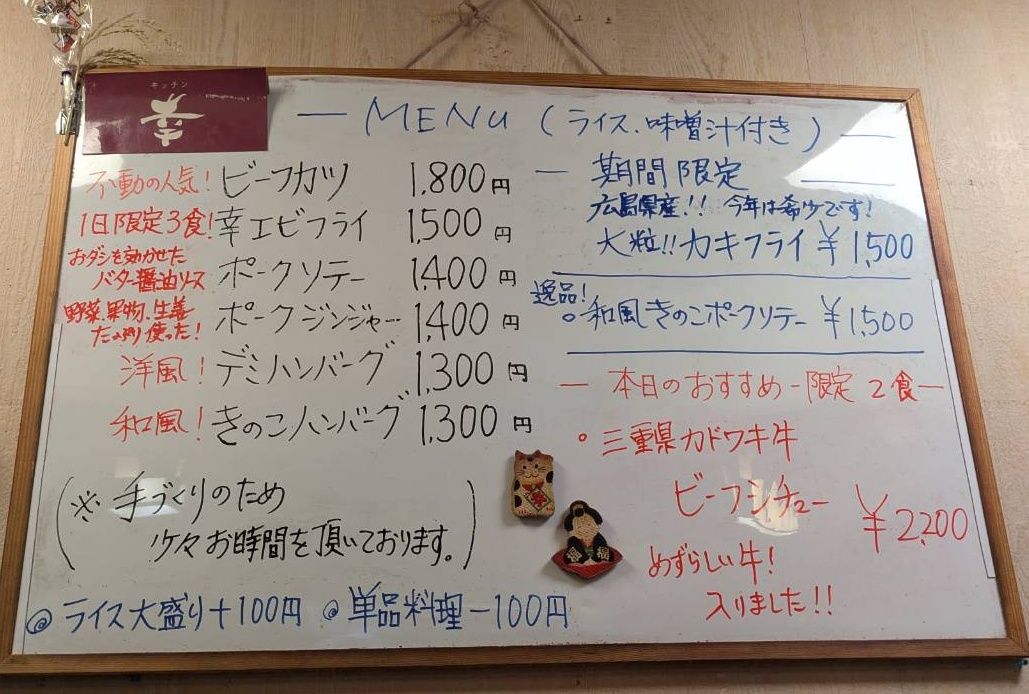 キッチン
幸
— MENU (ライス、味噌汁付き) —
不動の人気! ビーフカツ 1,800円
1日限定3食! 幸エビフライ 1,500円
おダシを効かせた
バター醤油ソース ポークソテー 1,400円
野菜、果物、生姜
たっぷり使った! ポークジンジャー 1,400円
洋風! デミハンバーグ 1,300円
和風! きのこハンバーグ 1,300円
(※ 手づくりのため
少々お時間を頂いております。)
@ライス大盛り+100円 @単品料理-100円
— 期間限定 —
広島県産!! 今年は希少です!
大粒!! カキフライ ¥1,500
逸品!
。和風きのこポークソテー ¥1,500
— 本日のおすすめ - 限定2食 —
。三重県カドワキ牛
ビーフシチュー ¥2,200
めずらしい牛!
入りました!!
福